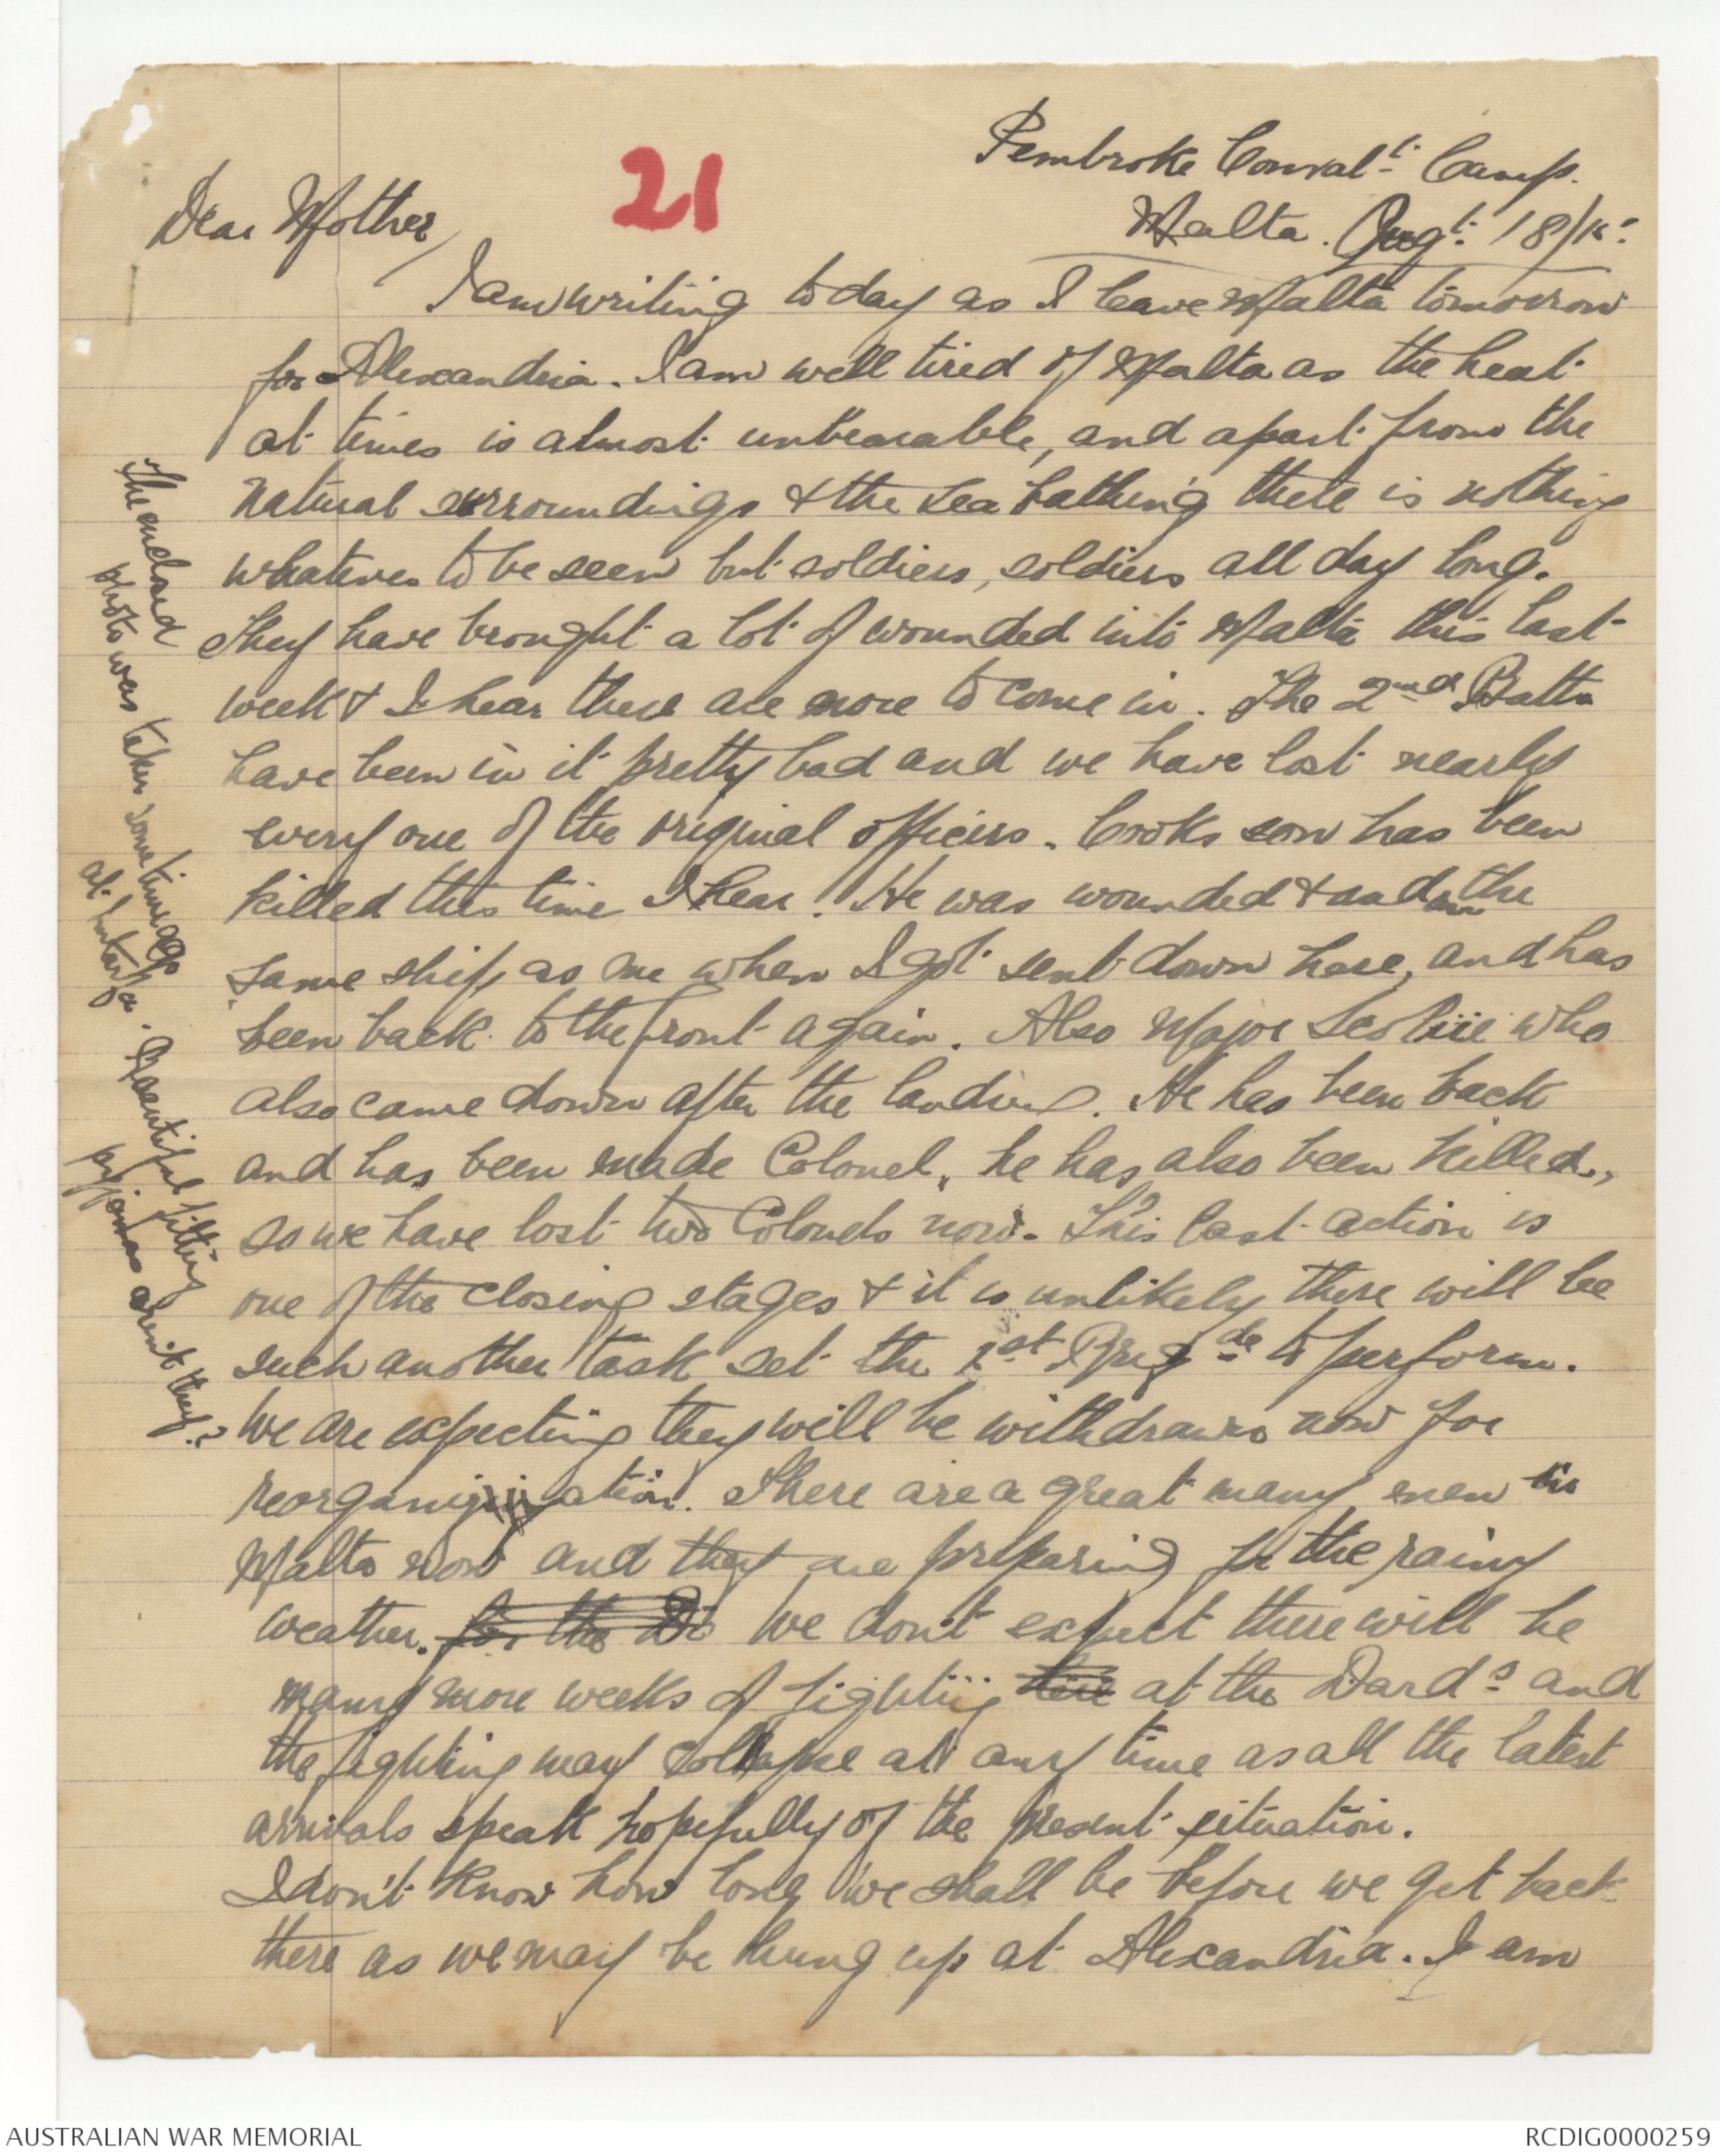 21
Pembroke Conval.t Camp.
Malta. Augt: 18/15.
Dear Mother,
I am writing today as I leave Malta tomorrow
for Alexandria. I am well tired of Malta as the heat
at times is almost unbearable, and apart from the
natural surroundings & the sea bathing there is nothing
whatever to be seen but soldiers, soldiers all day long.
They have brought a lot of wounded into Malta this last
week & I hear there are more to come in. The 2nd Battn
have been in it pretty bad and we have lost nearly
every one of the original officers. Cooks son has been
killed this time I hear. He was wounded & and on the
same ship as me when I got sent down here, and has
been back to the front again. Also Major Scobie who
also came down after the landing. He has been back
and has been made Colonel, he has also been killed,
so we have lost two Colonels now. This last action is
one of the closing stages & it is unlikely there will be
such another task set the 1st Brigde to perform.
We are expecting they will be withdrawn now for
reorganization. There are a great many men in
Malta now and they are preparing for the rainy
weather. for the Di We don't expect there will be
many more weeks of fighting here at the Dards and
the fighting may collapse at any time as all the latest
arrivals speak hopefully of the present situation.
I don't know how long we shall be before we get back
there as we may be hung up at Alexandria. I am
The enclosed
photo was taken some time ago
at Imtarfa. Beautiful fitting
pyjamas aren't they?
AUSTRALIAN WAR MEMORIAL
RCDIG0000259